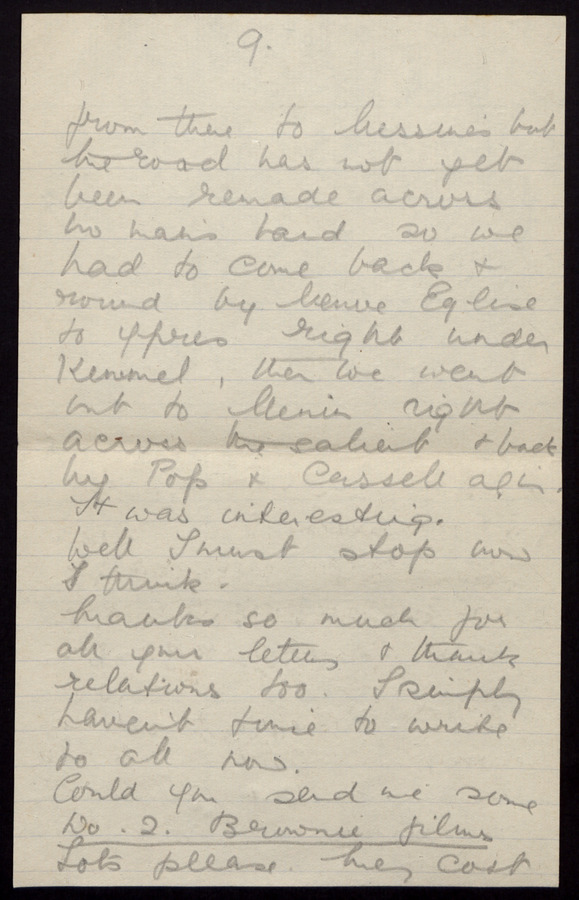 9.
from there to Messines but
the road has not yet
been remade across
no mans land so we
had to come back &
round by Neuve Eglise
to Ypres right under
Kemmel, then we went
out to Menin right
across the salient & back
by Pop & Cassell again.
It was interesting.
Well I must stop now
I think.
Thanks so much for
all your letters & thank
relations too. I simply
haven't time to write
to all now.
Could you send me some
No. 2. Brownie films
Lots please. They cost